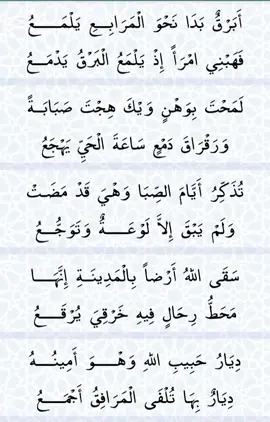 أَبَرْقٌ بَدَا نَحْوَ الْمَرَابِعِ يَلْمَعُ
فَهَبْنِي امْرَأً إِذْ يَلْمَعُ الْبَرْقُ يَدْمَعُ
لَمَحْتَ بِوَهْنٍ وَيْكَ هِجْتَ صَبَابَةً
وَرَقْرَاقَ دَمْعٍ سَاعَةَ الْحَيِّ يَهْجَعُ
تُذَكِّرُ أَيَّامَ الصِّبَا وَهْيَ قَدْ مَضَتْ
وَلَمْ يَبْقَ إِلاَّ لَوْعَةٌ وَتَوَجُّعُ
سَقَى اللهُ أَرْضاً بِالْمَدِينَةِ إِنَّهَا
مَحَطُّ رِحَالٍ فِيهِ خَرْقِيَ يُرْقَعُ
دِيَارُ حَبِيبِ اللهِ وَهْوَ أَمِينُهُ
دِيَارٌ بِهَا تُلْفَى الْمَرَافِقُ أَجْمَعُ